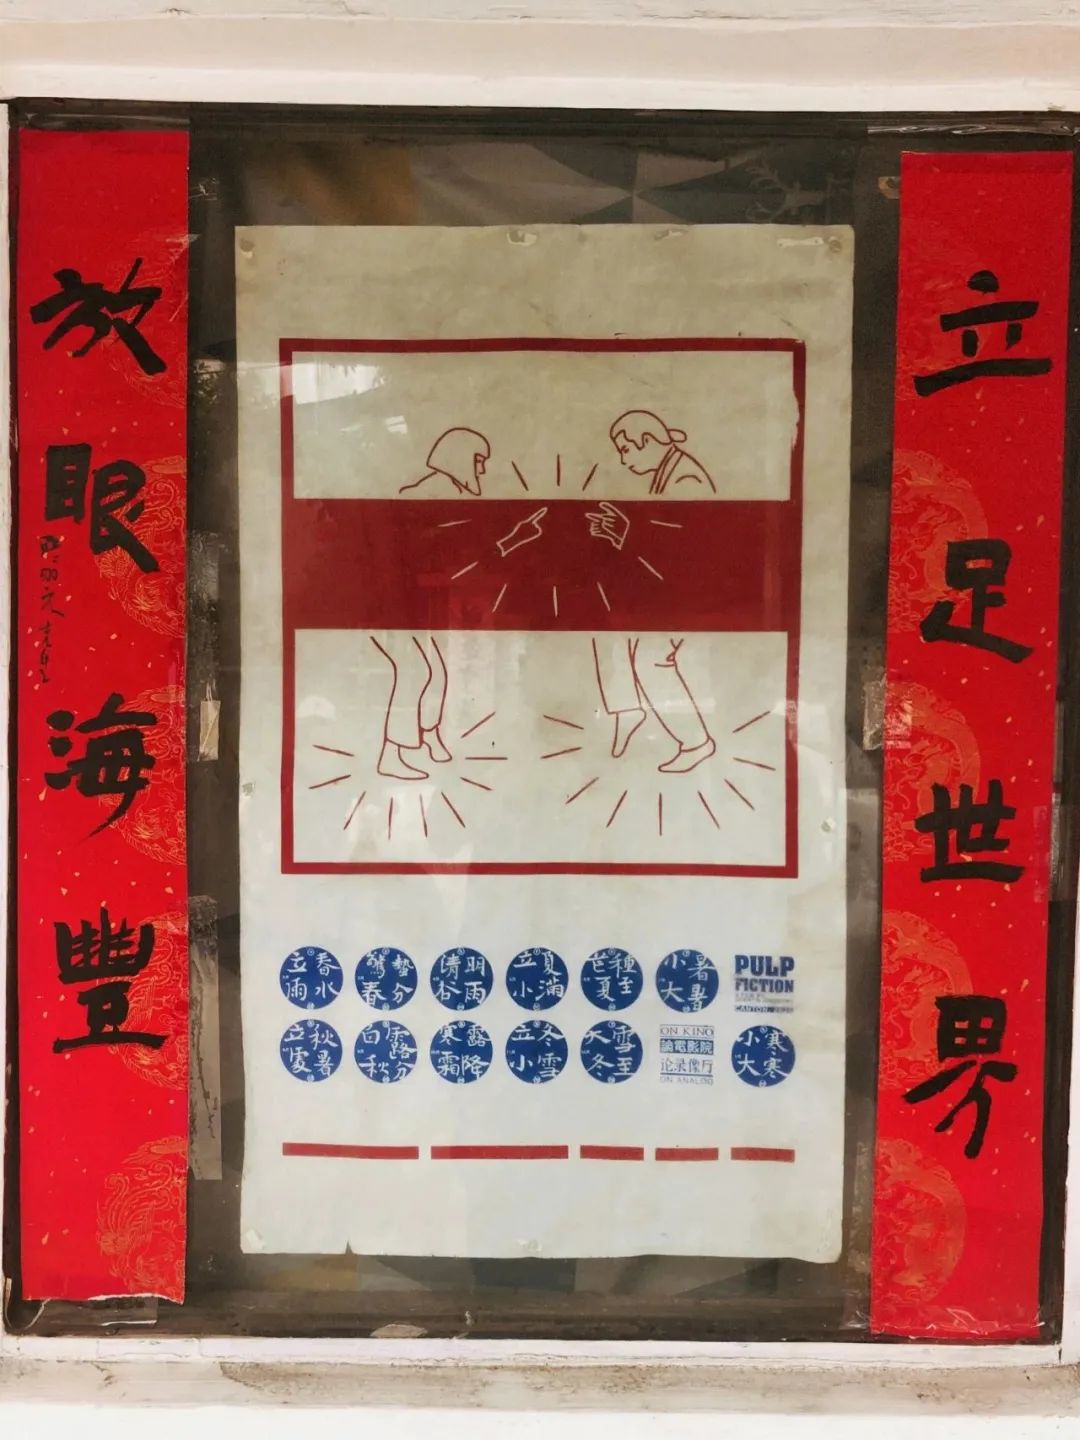 立足世界
放眼海豐
立春
雨水
驚蟄
春分
清明
谷雨
立夏
小滿
芒種
夏至
小暑
大暑
PULP
FICTION
立秋
處暑
白露
秋分
寒露
霜降
立冬
小雪
大雪
冬至
ON KINO
論電影院
论录像厅
ON ANALOG
小寒
大寒